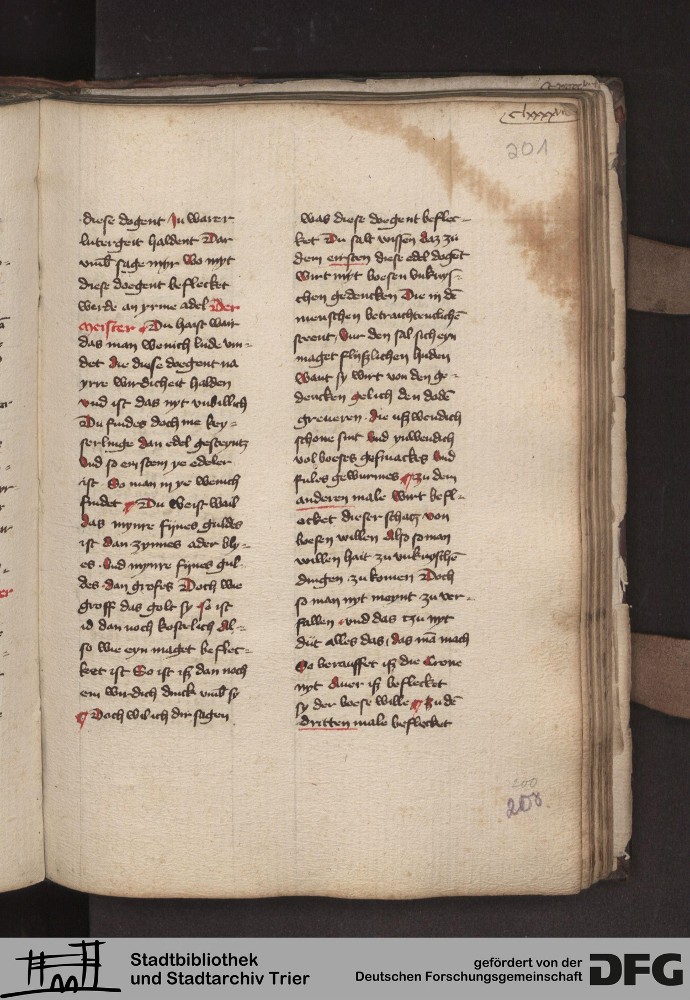 Clxxxvii
201
diese dogent In warer
lutergeit haldent Dar
vmb sage myr Wo myt
diese doegent beflecket
werde an yrme adel Der
meister Du haist wair
das man wenich lude vin=
det die diese doegent na
yrre wirdicheit halden
vnd ist das nyt vnbillich
Du findes doch me key=
serlinge dan edel gesteyntz
Vnd so ein stein ye edeler
ist So man in ye wenich
findet Du Weist wail
das mynre fijnes guldes
ist dan zynnes ader bly=
es Vnd mynre fijnes gul
des dan grofes Doch wie
groff das golt sy So ist
id dan noch kostlich Al=
so wie eyn maget beflec=
ket ist So ist iß dan noch
ein wirdich dinck vmb sy
Doch wil ich dir sagen
was diese doegent beflec=
ket Du salt wissen daz zu
dem eirsten diese edel dogent
wirt myt boesen vnkuys=
chen gedencken Die in dē
menschen betrachtendichē
steent Vur den sal sich eyn
maget flyßlichen huden
Want sy wirt von den ge=
dencken gelich den doden
greueren die ußwendich
schone sint Vnd ynwendich
vol boeses gesmackes Vnd
fules gewurmes zu dem
anderen male wirt befl=
ecket dieser schatz von
boesen willen Also so man
willen hait zu vnkuyschē
dingen zu komen Doch
so man nyt meynt zu ver=
fallen vnd das tzu nyt
dut alles das das mā mach
So berauffet iß die Crone
nyt Auer iß beflecket
sy der boese wille Zu dē
dritten male beflecket
200
208
Stadtbibliothek
und Stadtarchiv Trier
gefördert von der
Deutschen Forschungsgemeinschaft
DFG